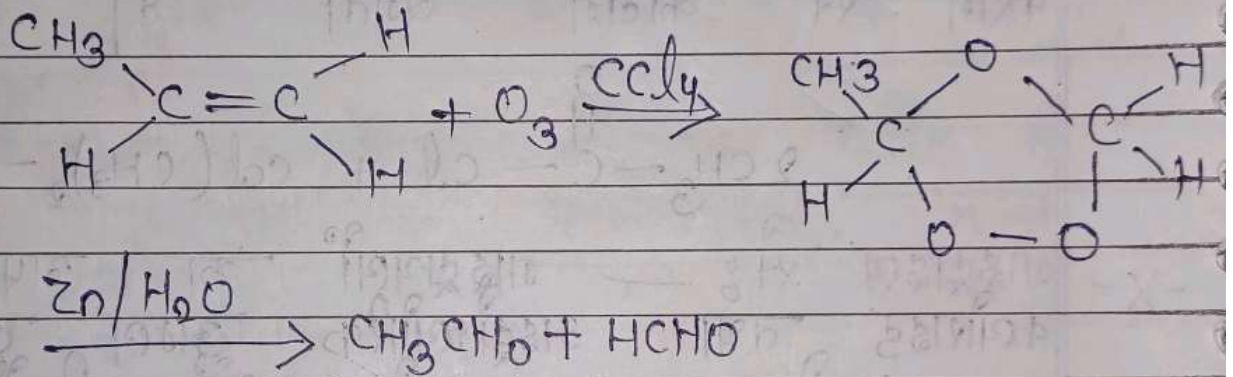 CH3 H
C = C + O3 CCl4 → CH3 O H
H H C C
H H
O — O
Zn/H2O → CH3CHO + HCHO